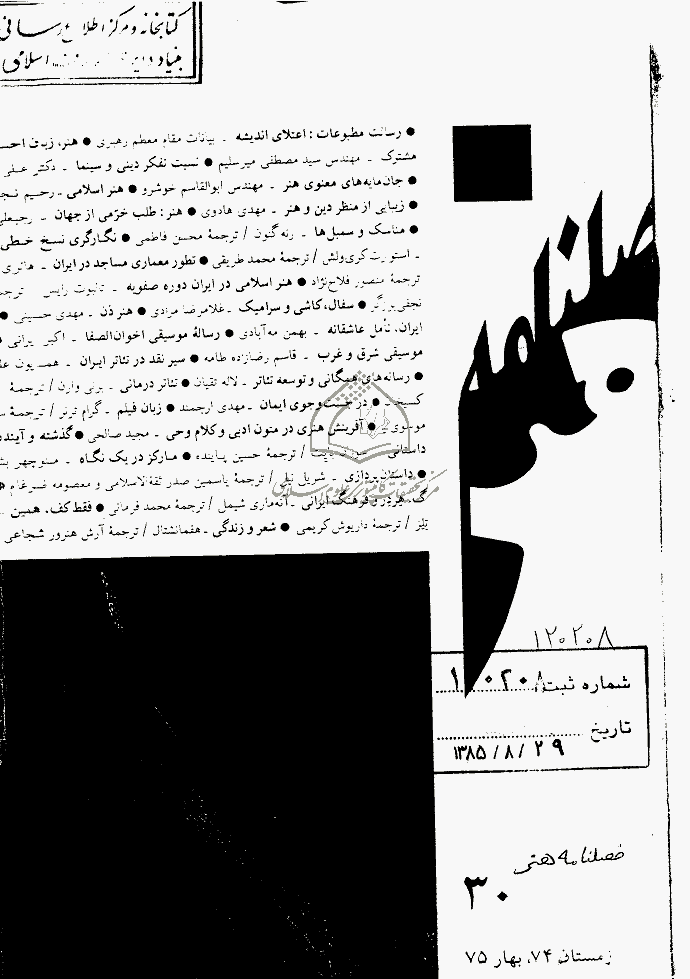 کتابخانه و مرکز اطلاع رسانی
بنیاد دایرة المعارف اسلامی
● رسالت مطبوعات : اعتلای اندیشه ـ بیانات مقام معظم رهبری ● هنر، زبان
مشترک ـ مهندس سید مصطفی میرسلیم ● نسبت تفکر دینی و سینما ـ دکتر
● جان‌مایه‌های معنوی هنر ـ مهندس ابوالقاسم خوشرو ● هنر اسلامی ـ رحیم
● زیبایی از منظر دین و هنر ـ مهدی هادوی ● هنر: طلب خرّمی از جهان ـ رجبعلی
● مناسک و سمبل‌ها ـ رنه گنون / ترجمهٔ محسن فاطمی ● نگارگری نسخ خطی
ـ استوارت کری‌ولش / ترجمهٔ محمد طریقی ● تطور معماری مساجد در ایران ـ هانری
ترجمهٔ منصور فلاح‌نژاد ● هنر اسلامی در ایران دوره صفویه ـ تالبوت رایس
نجفی‌برزگر ● سفال، کاشی و سرامیک ـ غلامرضا مرادی ● هنر ذن ـ مهدی حسینی ●
ایران، تأمل عاشقانه ـ بهمن مه‌آبادی ● رسالهٔ موسیقی اخوان‌الصفا ـ اکبر ایرانی
موسیقی شرق و غرب ـ قاسم رضازاده طامه ● سیر نقد در تئاتر ایران ـ همایون
● رسانه‌های همگانی و توسعه تئاتر ـ لاله تقیان ● تئاتر درمانی ـ برنی وارن / ترجمهٔ
● در جست‌وجوی ایمان ـ مهدی ارجمند ● زبان فیلم ـ گرام ترنر / ترجمهٔ
موسوی ● آفرینش هنری در متون ادبی و کلام وحی ـ مجید صالحی ● گذشته و
داستانی / ترجمهٔ حسین پاینده ● مارکز در یک نگاه ـ منوچهر
● داستان‌پردازی ـ شریل نبلی / ترجمهٔ یاسمین صدر ثقةالاسلامی و معصومه ضرغام
و فرهنگ ایرانی ـ آنه‌ماری شیمل / ترجمهٔ محمد فرمانی ● فقط کف، همین ـ
تِلِز / ترجمهٔ داریوش کریمی ● شعر و زندگی ـ هفمانشتال / ترجمهٔ آرش هنرور شجاعی
فصلنامه هنر
۱۲۰۲۰۸
شماره ثبت
تاریخ
۱۳۸۵/۸/۲۹
فصلنامه هنر
۳۰
زمستان ۷۴، بهار ۷۵